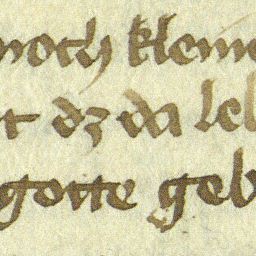 noch kleine
t dz da leb
gotte geb